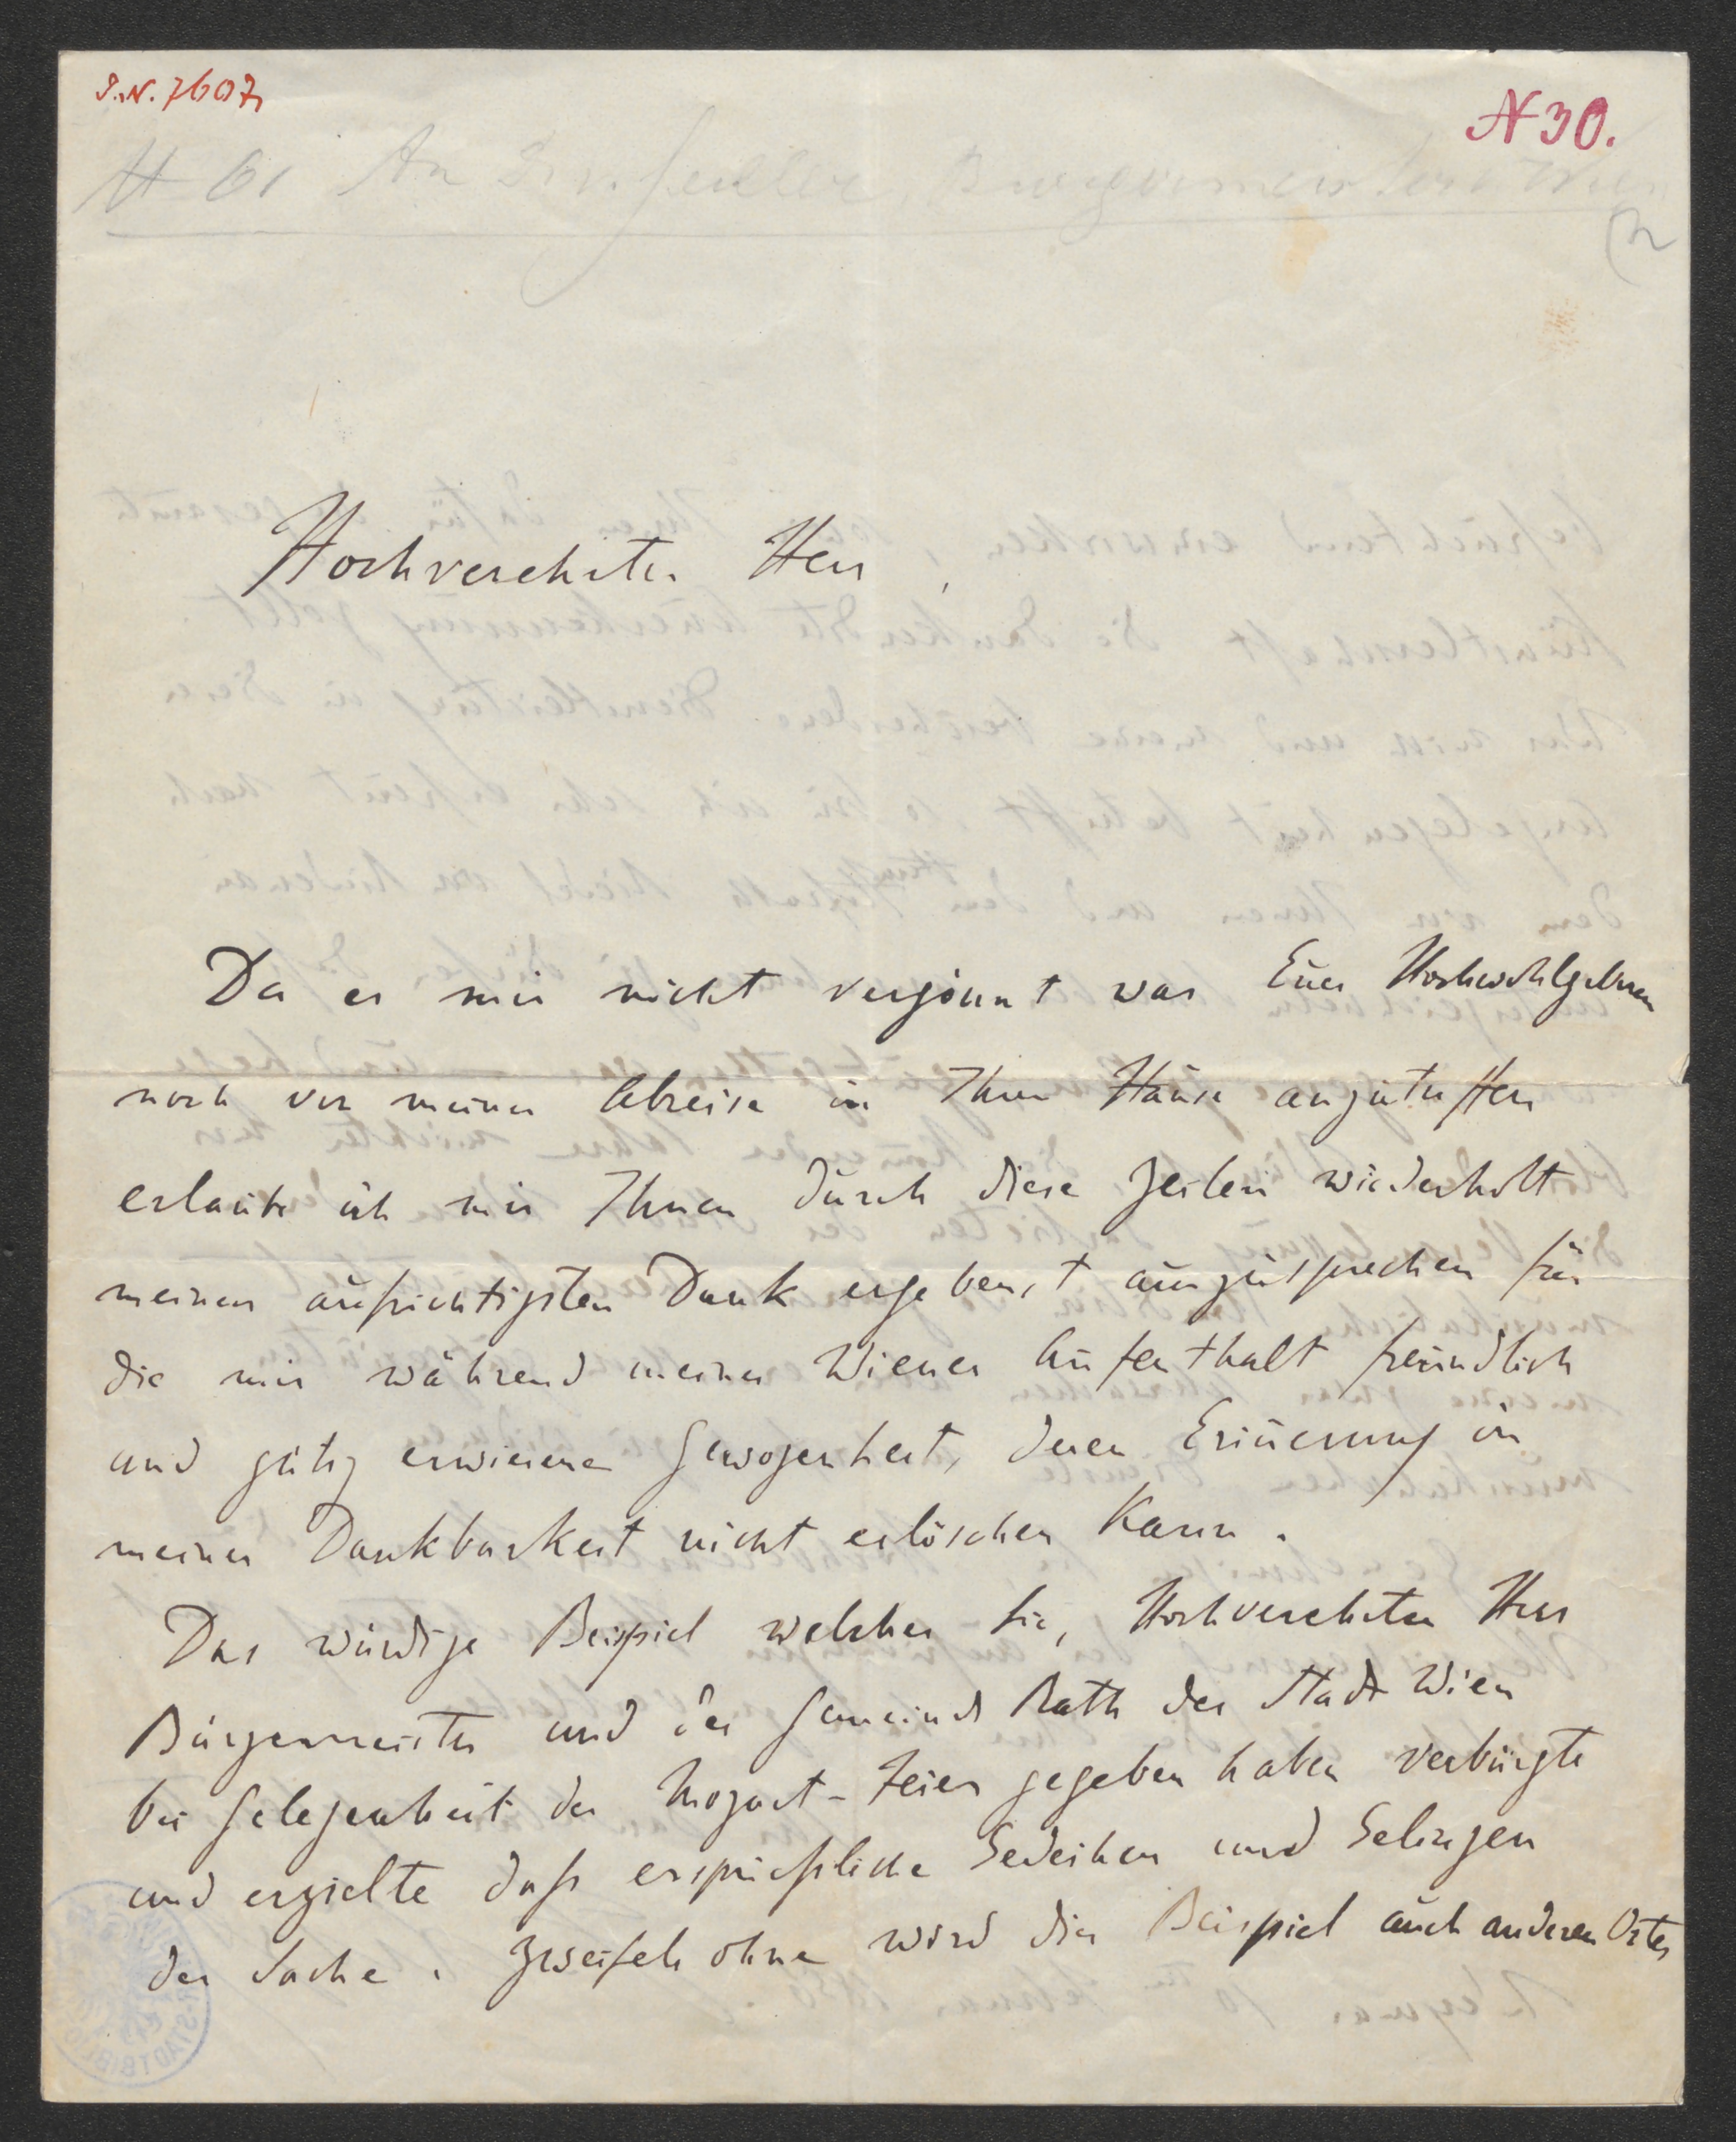 I.N. 7607
N 30.
# 61 An Dr v. Seiller, Bürgermeister in Wien
Hochverehrter Herr,
Da es mir nicht vergönnt war Euer Hochwohlgeboren
noch vor meiner Abreise in Ihren Hause anzutreffen
erlaube ich mir Ihnen durch diese Zeilen wiederholt
meinen aufrichtigsten Dank ergebenst auszusprechen für
die mir während meines Wiener Aufenthalt freundlich
und gütig erwiesene Gewogenheit, deren Erinnerung in
meiner Dankbarkeit nicht erlöschen kann.
Das würdige Beispiel welches Sie, Hochverehrter Herr
Bürgermeister und der Gemeinde Rath der Stadt Wien
bei Gelegenheit der Mozart-Feier gegeben haben verbürgte
und erzielte dass erspriessliche Gedeihen und Gelingen
der Sache. Zweifels ohne wird dies Beispiel auch anderen Ortes